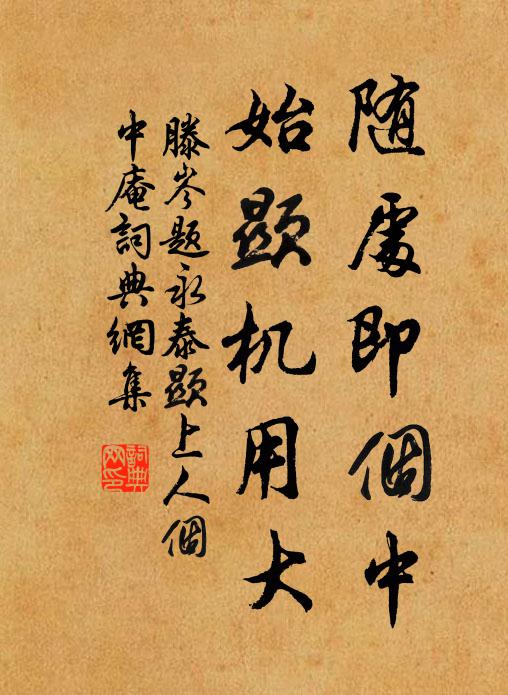 随處即個中
始顯机用大
滕岑题永泰顯上人個
中庵詞典網集
詞典网印